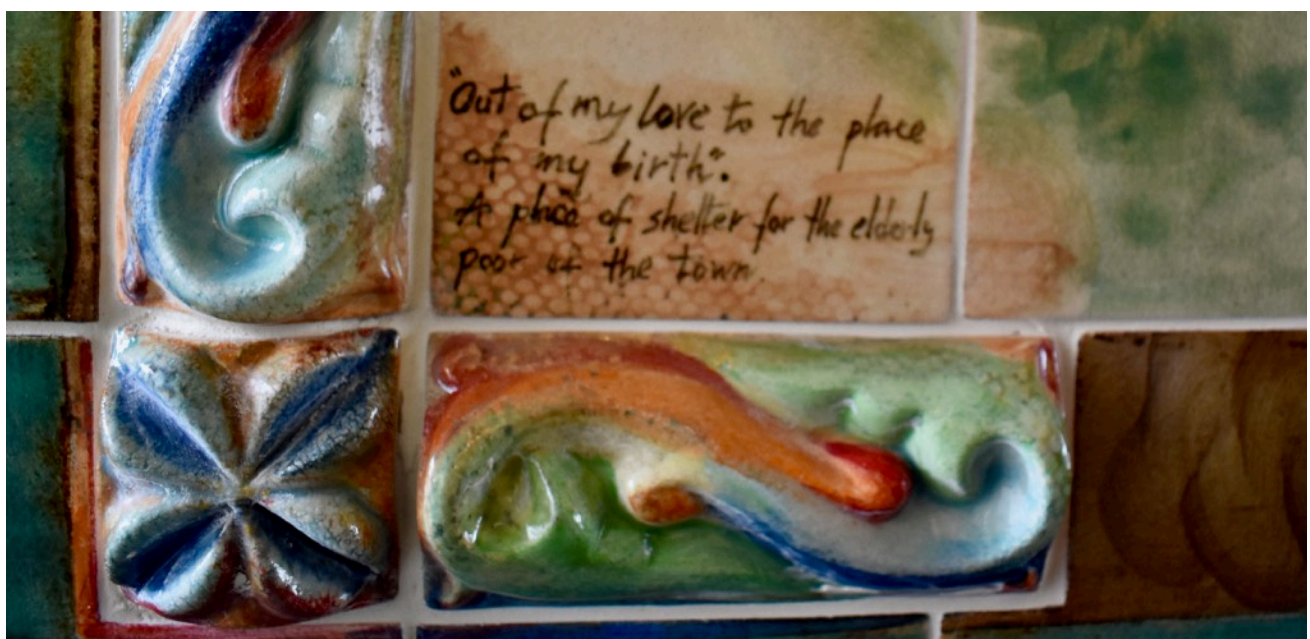 "Out of my love to the place
of my birth".
A place of shelter for the elderly
poor of the town.